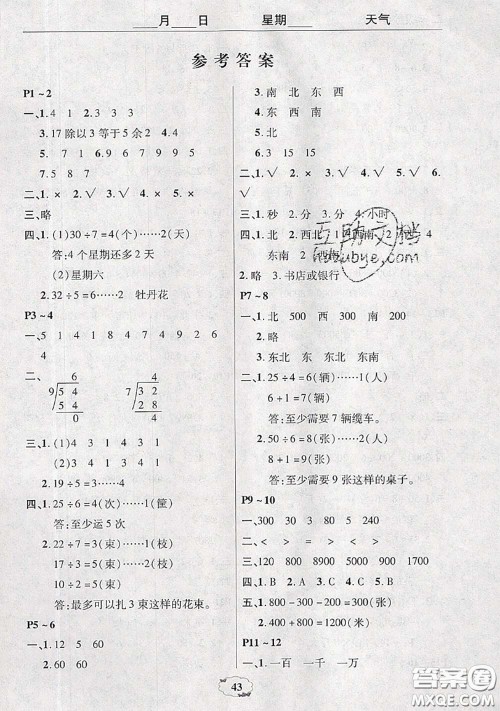 月 日 星期 天气
参考答案
P1~2
一、1.4 1 2.3 3 3
3.17除以3等于5余2 4.4
5.7 1.5 9 6 7 9 9 5
二、1.× 2.√ 3.√ 4.× 5.×
三、略
四、1.(1)30÷7=4(个)……2(天)
答:4个星期还多2天
(2)星期六
2.32÷5=6……2 牡丹花
P3~4
一、5 1 4 1 8 7 4 9 2 6
4
二、 6 4
9)54 7)32
54 28
0 4
三、1.(1)4 3 1 4 3 1
(2)3 4 4 3 4 4
2.19÷5=3……4
四、1.25÷6=4(次)……1(筐)
答:至少运5次
2.22÷7=3(束)……1(枝)
17÷5=3(束)……2(枝)
10÷3=3(束)……1(枝)
答:最多可以扎3束这样的花束。
P5~6
一、1.12 5 60
2.60 60
3.南 北 东 西
4.东 南 西 北
5.北
6.3 15 15
二、1.√ 2.× 3.× 4.× 5.√ 6.√
7.√
三、1.秒 2.分 3.分 4.小时
四、1.(2)西北 1 西南 2 4
东南 2 西北
2.略 3.书店或银行
P7~8
一、1.北 500 西 300 南 200
2.略
3.东北 东 东北 东南
二、1.25÷4=6(辆)……1(人)
6+1=7(辆)
答:至少需要7辆缆车。
2.50÷6=8(张)……2(人)
8+1=9(张)
答:至少需要9张这样的桌子。
P9~10
一、300 30 3 80 5 240
二、< > = < > <
三、120 800 8900 5000 900 1700
四、1.B 2.A 3.C 4.A 5.B
五、1.800-300-200=300(米)
2.400+800=1200(米)
P11~12
一、1.一百 一千 一万
43
互助文档
hzdubye.com
答案圈
MXQE.COM